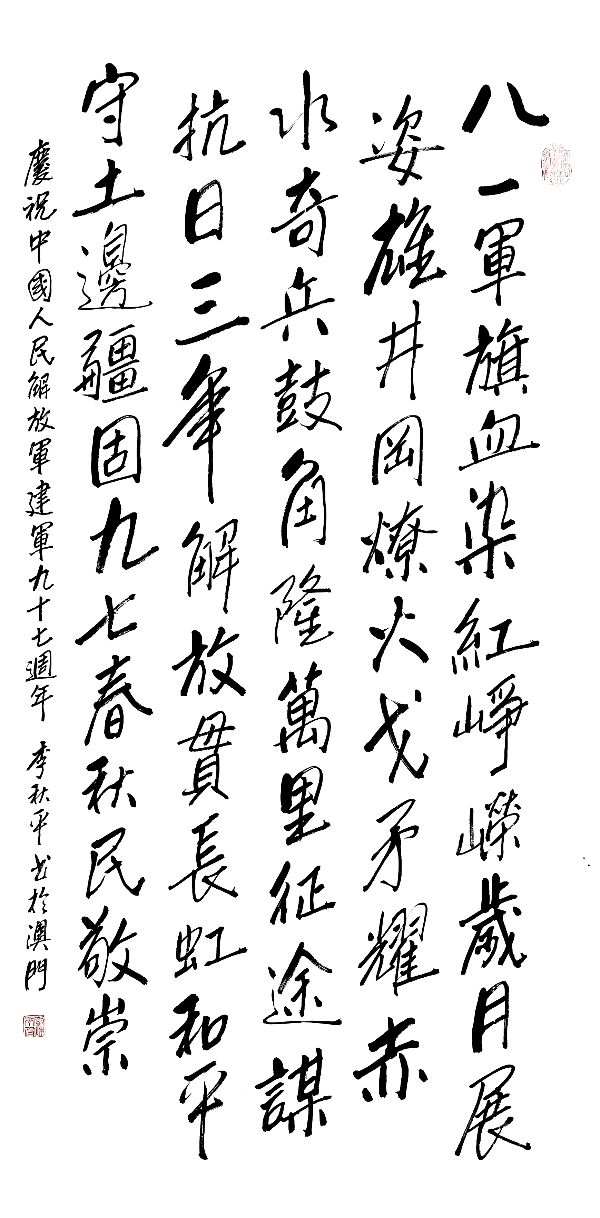 八一軍旗血染紅崢嶸歲月展
姿雄井岡燎火戈矛耀赤
水奇兵鼓角隆萬里征途謀
抗日三年解放貫長虹和平
守土邊疆固九七春秋民敬崇
慶祝中國人民解放軍建軍九十七週年 李秋平书於澳門